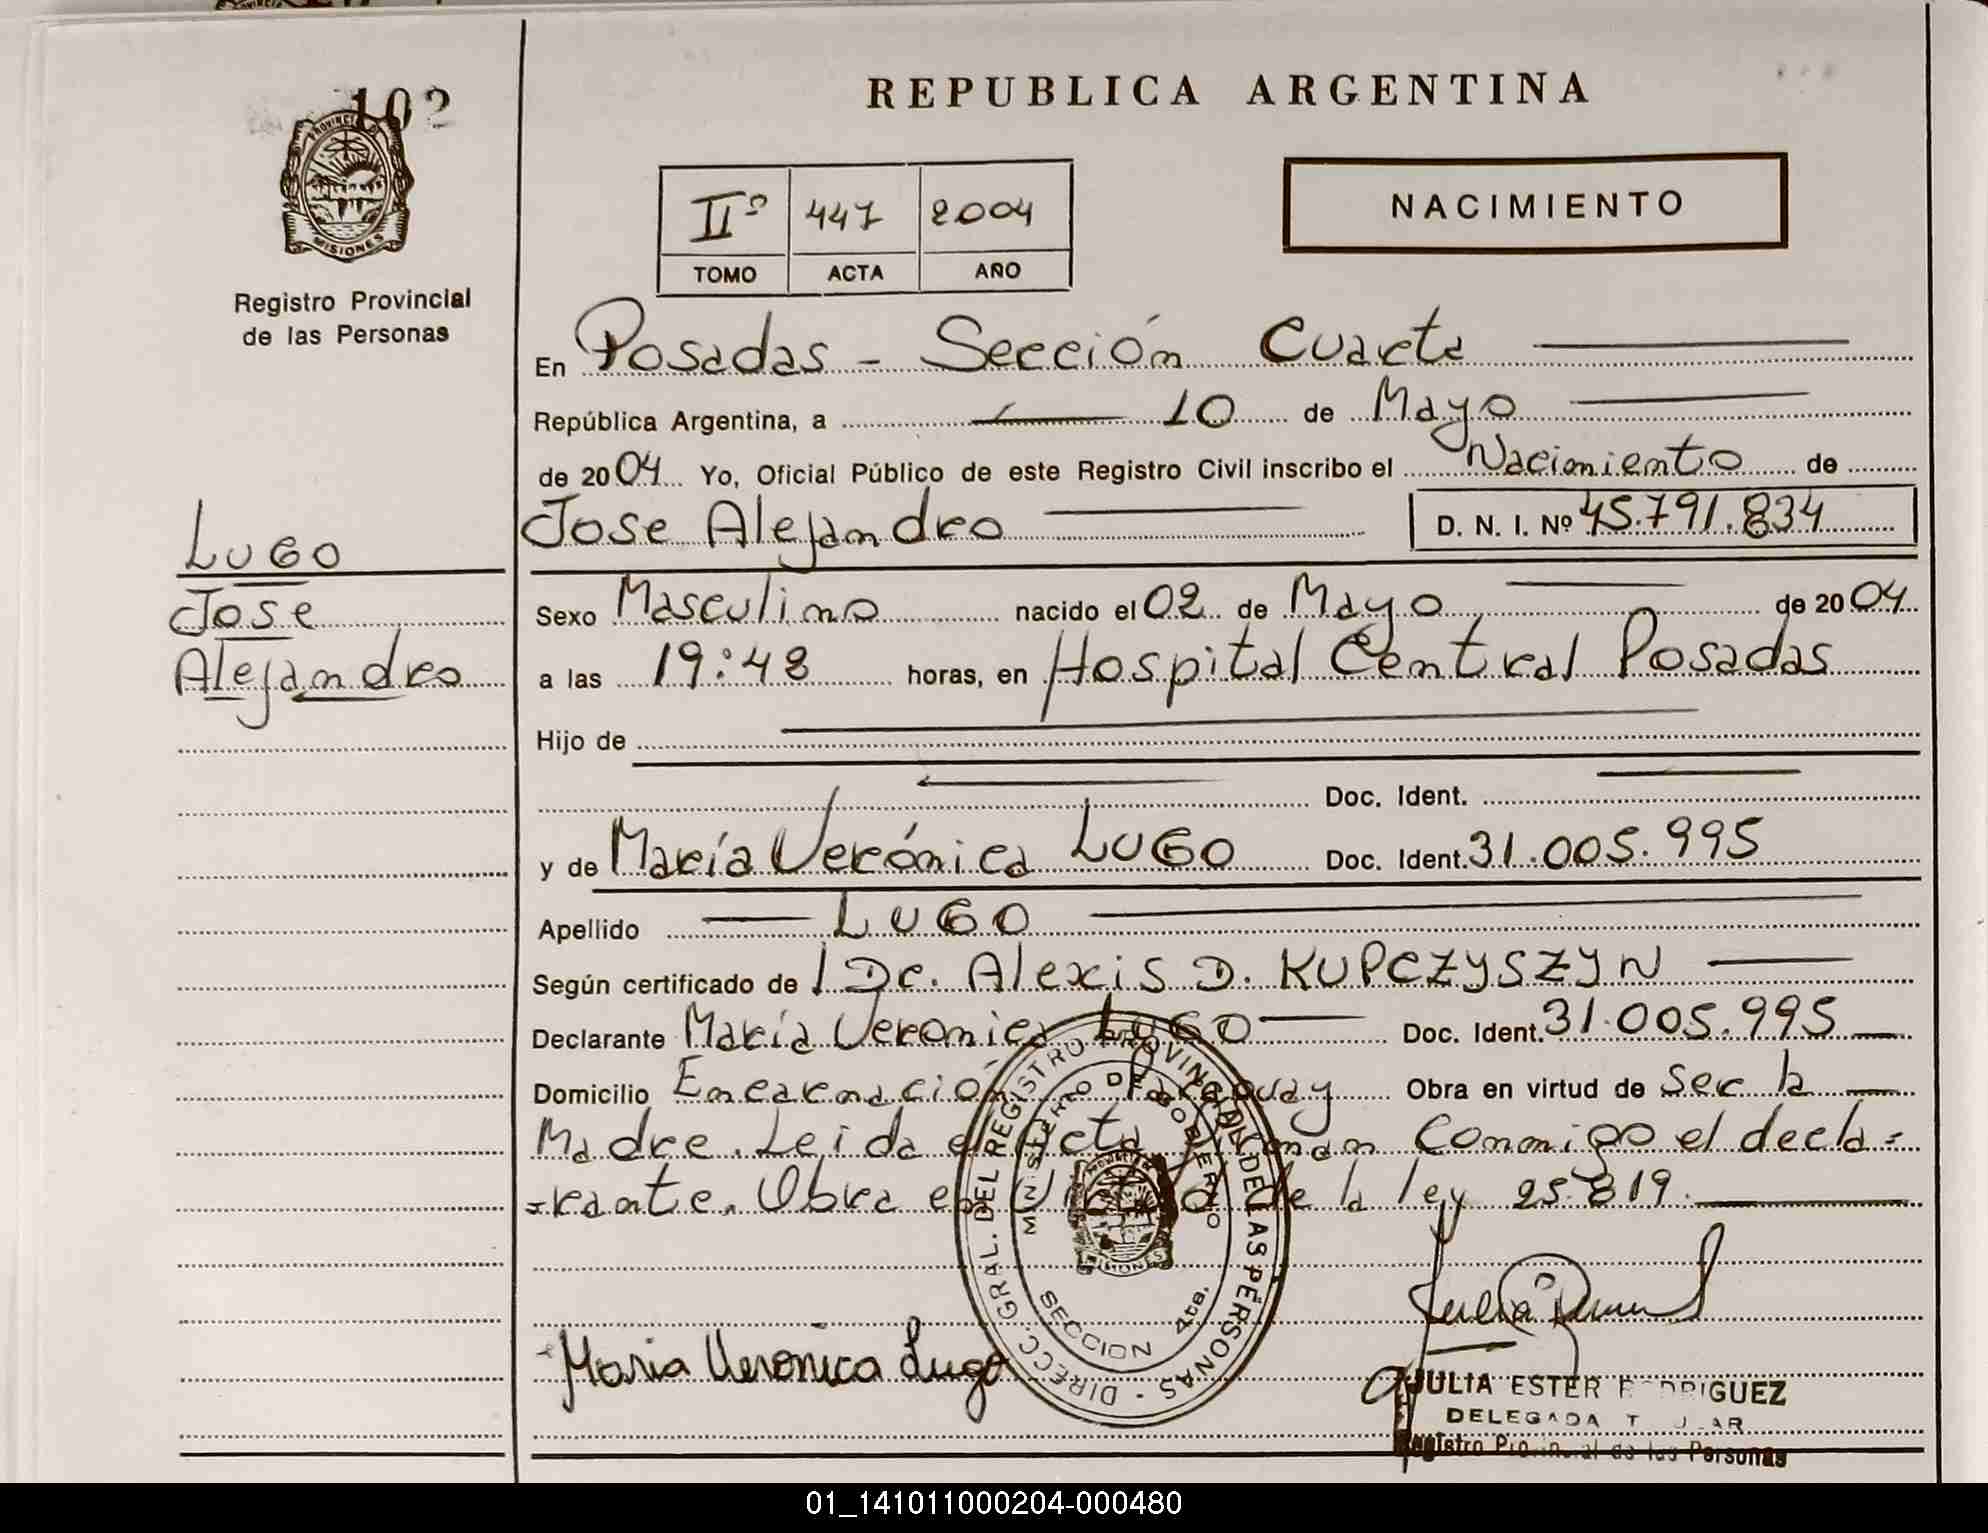 102
PROVINCIA DE
MISIONES
Registro Provincial
de las Personas
LUGO
Jose
Alejandro
REPUBLICA ARGENTINA
IIº 447 2004
TOMO ACTA AÑO
NACIMIENTO
En Posadas - Sección Cuarta
República Argentina, a 10 de Mayo
de 2004 Yo, Oficial Público de este Registro Civil inscribo el Nacimiento de
Jose Alejandro D. N. I. Nº 45.791.834
Sexo Masculino nacido el 02 de Mayo de 2004
a las 19:48 horas, en Hospital Central Posadas
Hijo de
Doc. Ident.
y de María Verónica LUGO Doc. Ident. 31.005.995
Apellido LUGO
Según certificado de Dr. Alexis D. KUPCZYSZYN
Declarante María Veronica LUGO Doc. Ident. 31.005.995
Domicilio Encarnación Paraguay Obra en virtud de Ser la
Madre. Leida el acta firman Conmigo el decla=
=rante. Obra en Virtud de la ley 25.819.
DIRECC. GRAL. DEL REGISTRO PROVINCIAL DE LAS PERSONAS
MINISTERIO DE GOBIERNO
SECCION 4ta.
Maria Veronica Lugo
JULIA ESTER RODRIGUEZ
DELEGADA TITULAR
Registro Provincial de las Personas
01_141011000204-000480